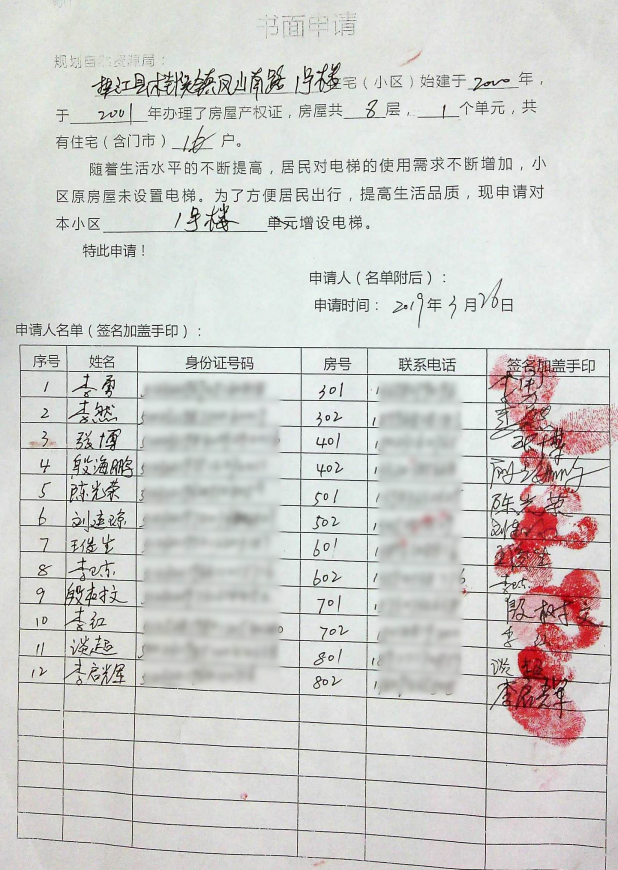 书面申请
规划自然资源局：
垫江县桂溪镇凤山南路1号楼住宅（小区）始建于2000年，
于2001年办理了房屋产权证，房屋共8层，1个单元，共
有住宅（含门市）16户。
随着生活水平的不断提高，居民对电梯的使用需求不断增加，小
区原房屋未设置电梯。为了方便居民出行，提高生活品质，现申请对
本小区1号楼单元增设电梯。
特此申请！
申请人（名单附后）：
申请时间：2019年3月26日
申请人名单（签名加盖手印）：
序号 姓名 身份证号码 房号 联系电话 签名加盖手印
1 李勇 301 李勇
2 李然 302 李然
3 张博 401 张博
4 殷海鹏 402
5 陈光荣 501 陈光荣
6 刘连琼 502
7 王俊生 601
8 李卫东 602 李卫东
9 殷树文 701 殷树文
10 李红 702 李红
11 谈超 801 谈超
12 李启光军 802